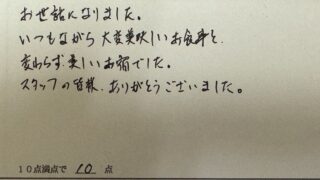 お世話になりました。
いつもながら大変美味しいお食事と、
変わらず楽しいお宿でした。
スタッフの皆様、ありがとうございました。
10点満点で 10 点